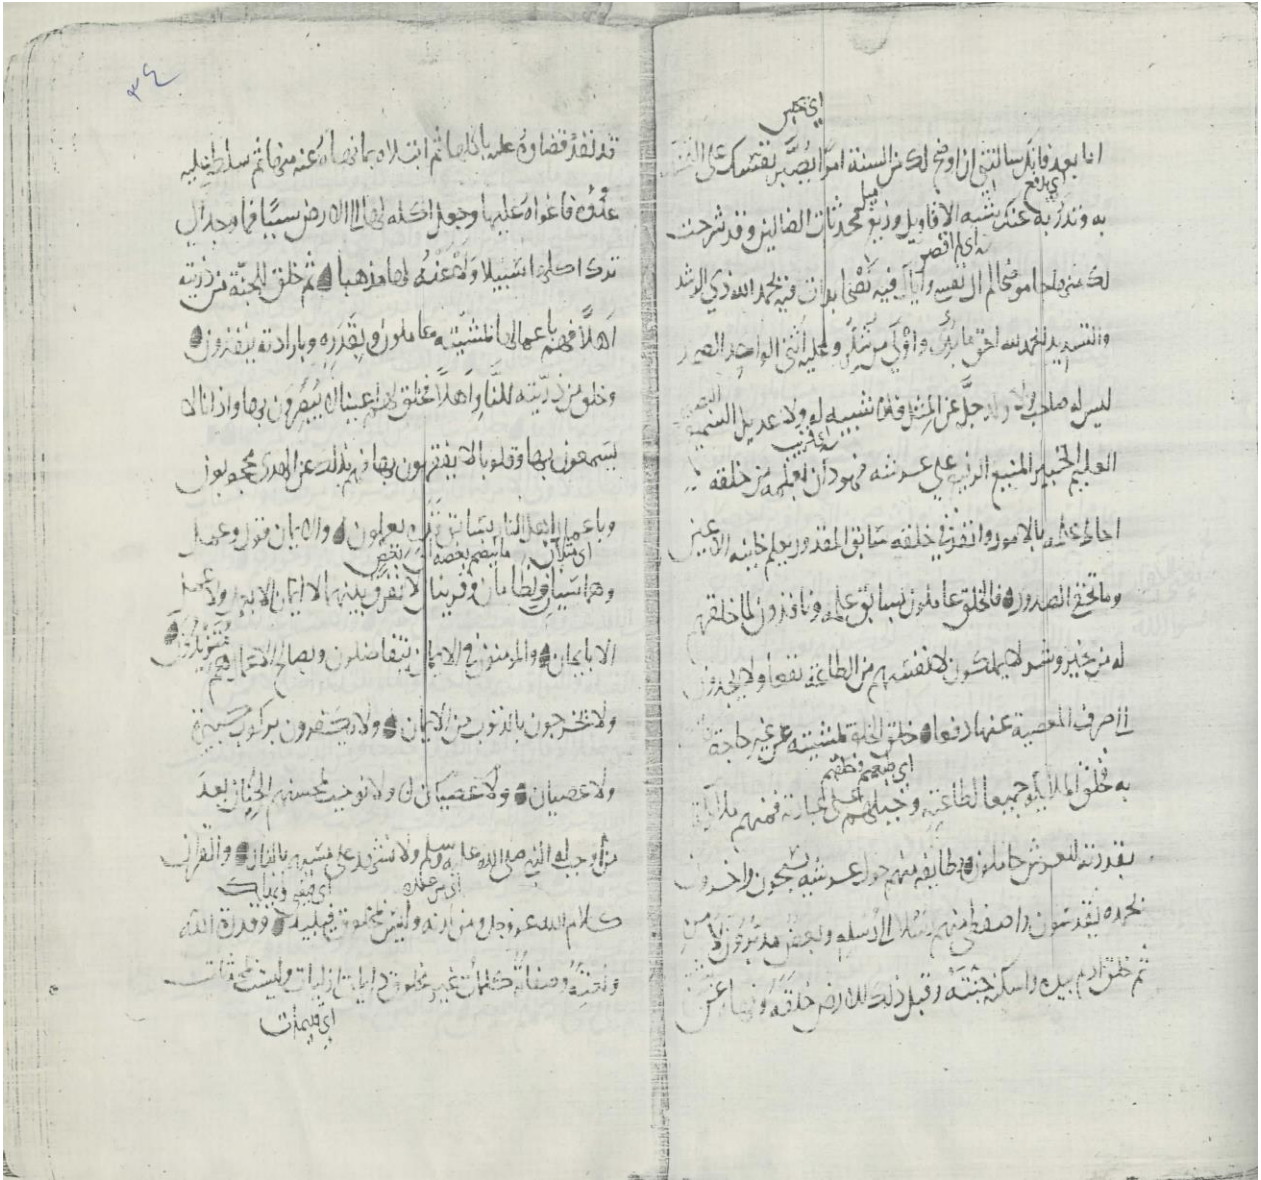 اي تحبس
اما بعد فانك سالتني ان اوضح لك من السنة امرا تصبر نفسك على التمسك
اي تدفع
ميل
به وتدرا به عنك شبه الاقاويل وزيغ محدثات الضالين وقد شرحت
اي لم اقصر
لك منهاجا موضحا لم ال نفسي واياك فيه نصحا بدات فيه بحمد الله ذي الرشد
والتسديد الحمد لله احق ما بدي واولى من شكر وعليه اثني الواحد الصمد
ليس له صاحبة ولا ولد جل عن المثل فلا شبيه له ولا عديل السميع البصير
اي قريب
العليم الخبير المنيع الرفيع عال على عرشه فهو دان بعلمه من خلقه
احاط علمه بالامور وانفذ في خلقه سابق المقدور يعلم خاينة الاعين
وما تخفي الصدور فالخلق عاملون بسابق علمه ونافذون لما خلقهم
له من خير وشر لا يملكون لانفسهم من الطاعة نفعا ولا يجدون
الى صرف المعصية عنها دفعا خلق الخلق لمشيته عن غير حاجة
اي طبعهم وفطرهم
به فخلق الملايكة جميعا لطاعته وجبلهم على عبادته فمنهم ملايكة
بقدرته للعرش حاملون وطايفة منهم حول عرشه يسبحون واخرون
بحمده يقدسون واصطفى منهم رسلا الى رسله وبعض مدبرون لامره
ثم خلق ادم بيده واسكنه جنته وقبل ذلك للارض خلقه ونهاه عن شجرة
٣٤
قد نفذ قضاوه عليه باكلها ثم ابتلاه بما نهاه عنه منها ثم سلط عليه
عدوه فاغواه عليها وجعل اكله لها الى الارض سببا فما وجد الى
ترك اكلها سبيلا ولا عنه لها مذهبا ثم خلق للجنة من ذريته
اهلا فهم باعمالها لمشيته عاملون وبقدره وبارادته ينفذون
وخلق من ذريته للنار اهلا فخلق لهم اعينا لا يبصرون بها واذانا لا
يسمعون بها وقلوبا لا يفقهون بها فهم بذلك عن الهدى محجوبون
وباعمال اهل النار بسابق قدره يعملون والايمان قول وعمل
اي مثلان ما ينضم بعضه الى بعض
وهما سيان ونظامان وقرينان لا نفرق بينهما لا ايمان الا بعمل ولا عمل
الا بايمان والمومنون في الايمان يتفاضلون وبصالح الاعمال هم متزايدون
ولا يخرجون بالذنوب من الايمان ولا يكفرون بركوب كبيرة
ولا عصيان ولا نوجب لمحسنهم الجنان بعد
من اوجب له النبي صلى الله عليه وسلم ولا نشهد على مسيهم بالنار والقران
اي من علمه
كلام الله عز وجل ومن لدنه وليس بمخلوق فيبيد وقدرة الله
ونعته وصفاته كلمات غير مخلوقة دايمات ازليات وليست بمحدثات